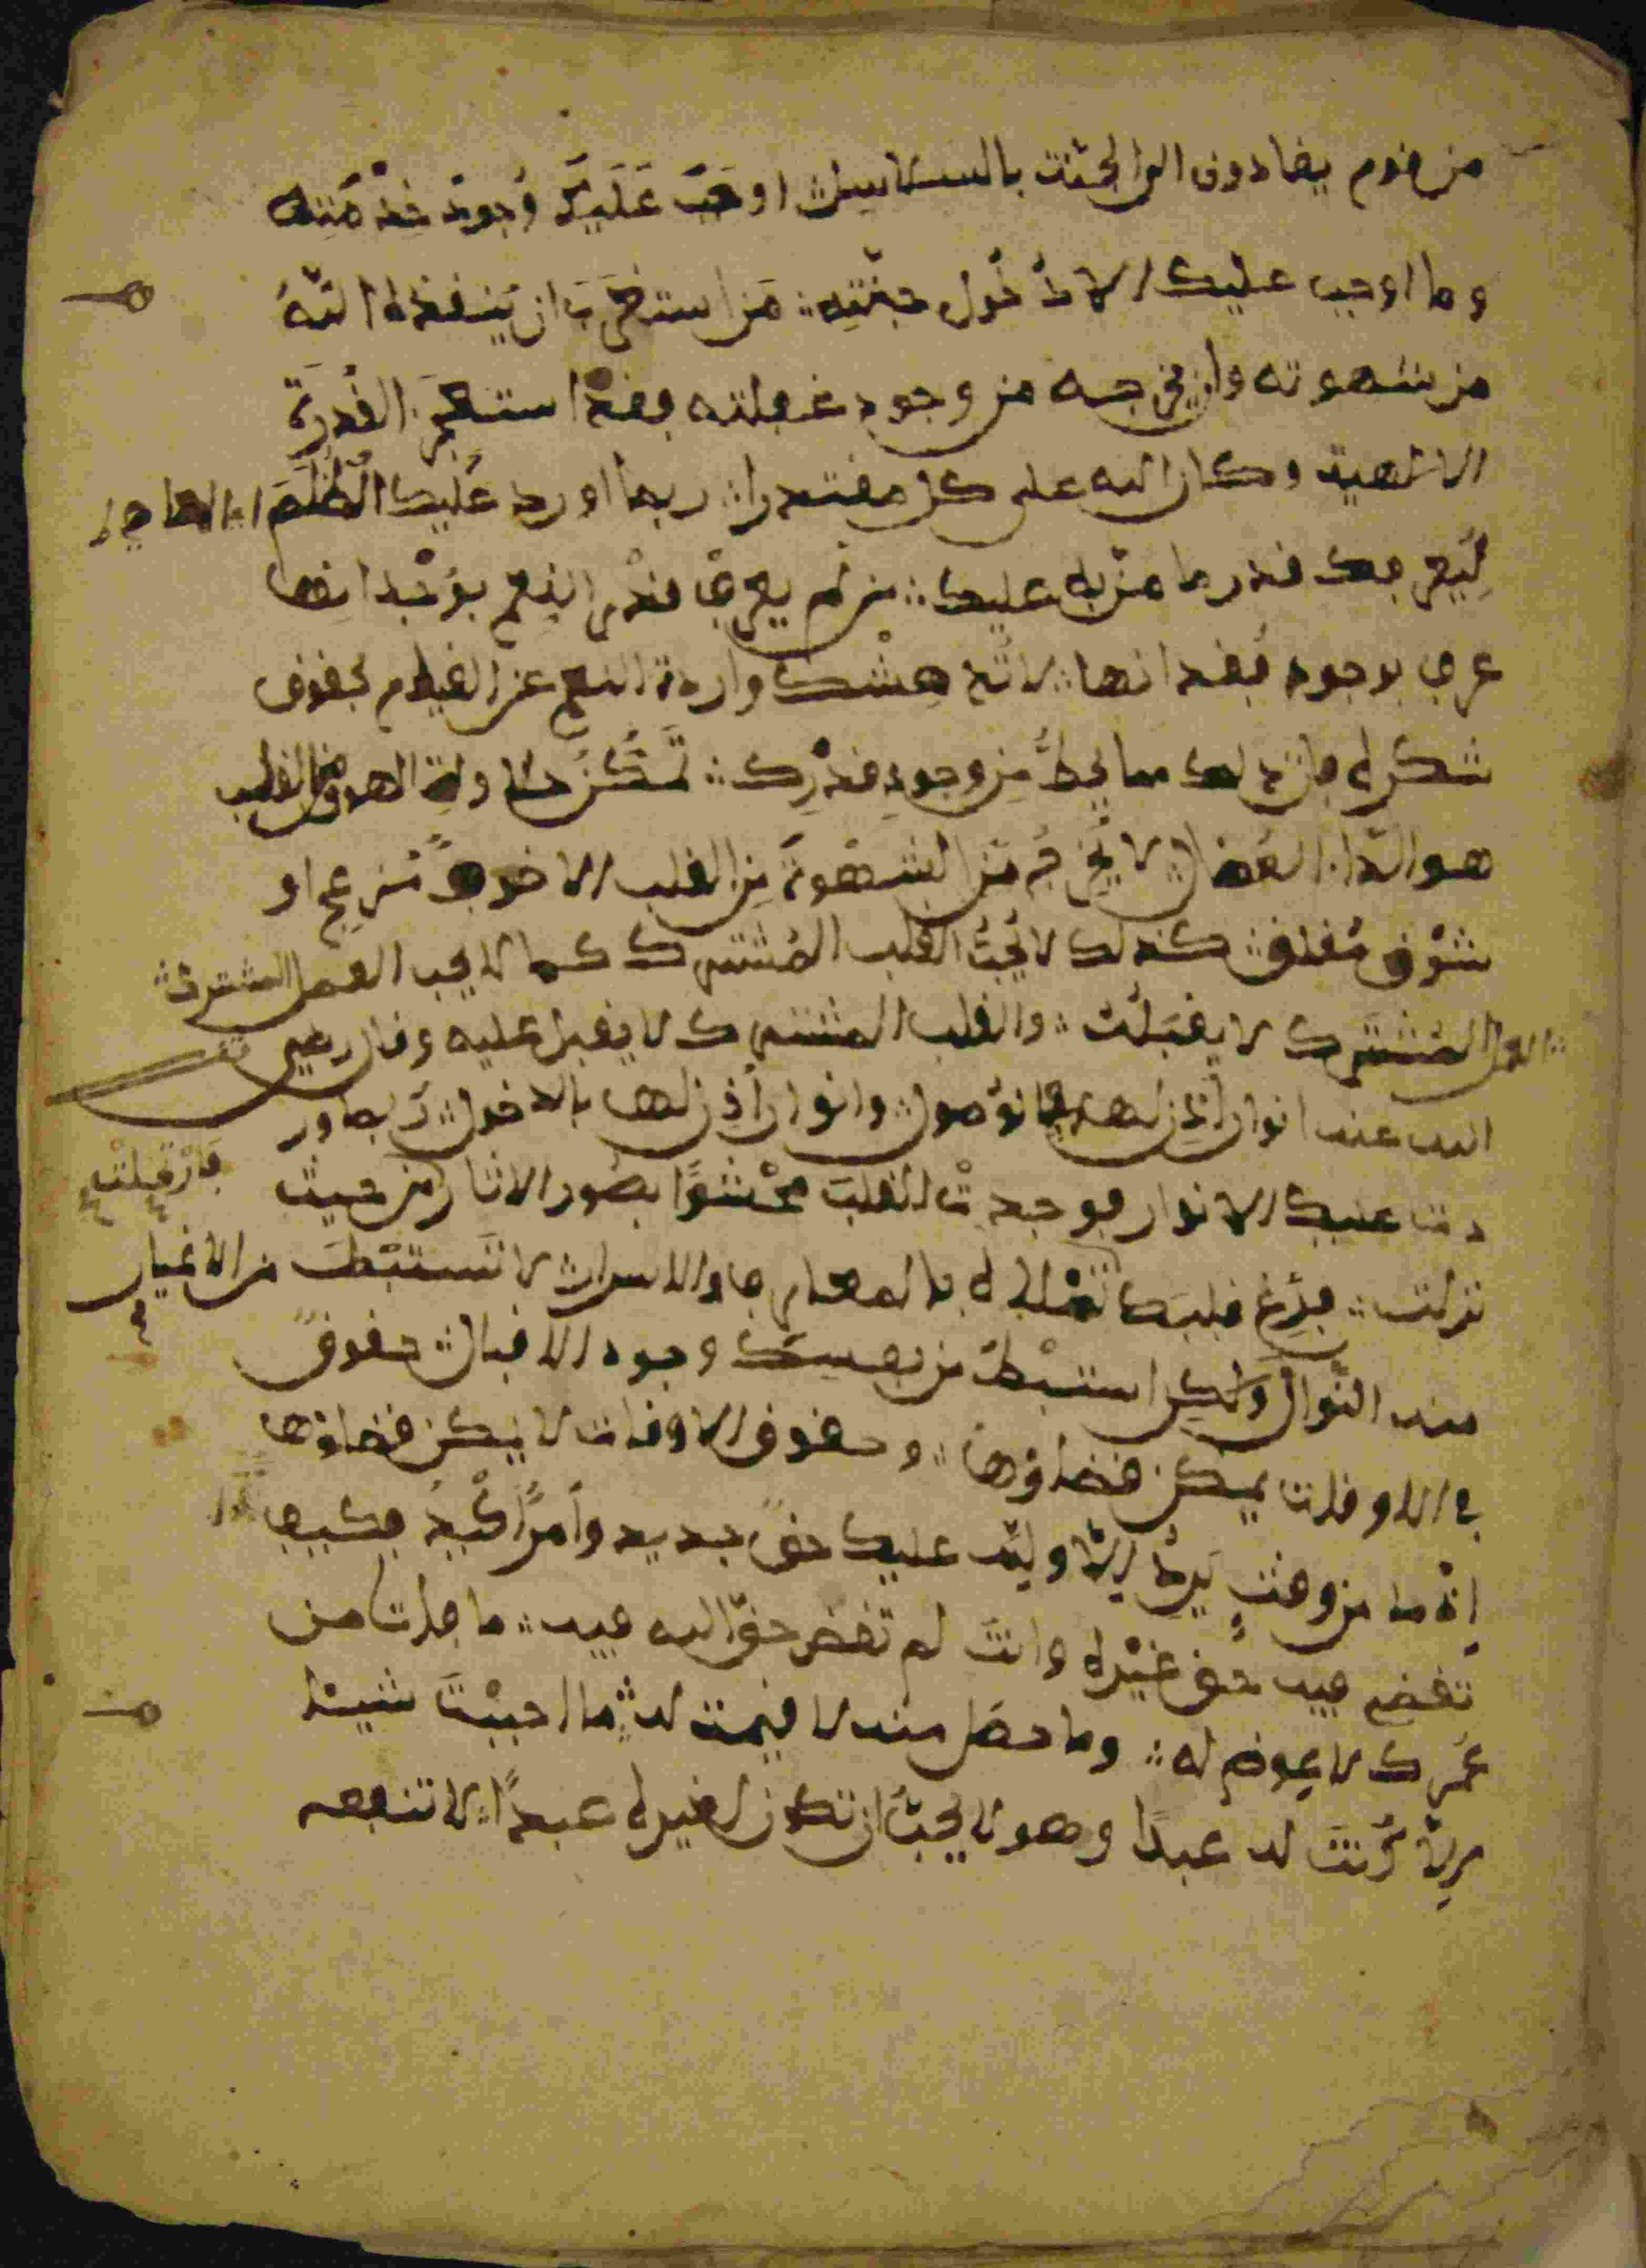 من قوم يقادون الى الجنة بالسلاسل اوجَبَ عَلَيْكَ وُجودَ خِدْمَتِه
وما اوجب عليك الا دُخُولَ جنّتِه مَن استغرَبَ ان يُنقذه اللّهُ
من شهوته وان يخرجه من وجود غفلته فقد استعجَزَ القُدرَةَ
الالاهية وكان الله على كل مقتدرا ربما اورد عَلَيك الظُّلَمَ
لِيُعرفك قدر ما منّ به عليك من لم يعرف قدْر النِعم بوُجْدانها
عرف بوجود فُقدانها لا تُدهِشْك واردة النعم عن القيام بحقوق
شكره فإن ذلك مما يحطُّ مِن وجودِ قدْرِك تَمَكُّنُ حلاوة الهوى من القلب
هو الدّاء العُضال لا يُخرجُ الشهْوةَ مِن القلب الا خوفٌ مُزعج او
شوْقٌ مُقلق كذلك لا يُحِبُّ القلب المُشترك كما لا يحب العمل المشترك
العمل المُشتَرك لا يقبَله والقلب المشترك لا يقبل عليه وقال رضي
الله عنه انوار أُذِن لها في الوُصول وانوار أُذِن لها بالدخول رُبما ور
دت عليك الانوار فوجدتْ القلبَ محْشوًّا بصُور الاثار من حيث
نزلت فرّغ قلبَك تمْلأه بالمعارف والاسرار لا تَستبْطِ من الاغيار
منه النّوالَ ولكن استبْطِ من نفسِك وجود الاقبال حقوقٌ
في الاوقات يمكن قضاؤها وحقوق الاوقات لا يمكن قضاؤها
إذْ ما من وقتٍ يَرِدُ الا ولله عليك حقٌ جديد وأَمرٌ أكيدٌ فكيف
تقضي فيه حقَّ غيْره وانتَ لم تقض حقّ الله فيه ما فات من
عُمرك لا عِوضَ له وما حصَل منه لا قيمة له ما احببْتَ شيئا
إلا كُنتَ له عبدًا وهو لا يحبُّ ان تكون لغيره عبدًا لا تنفعه